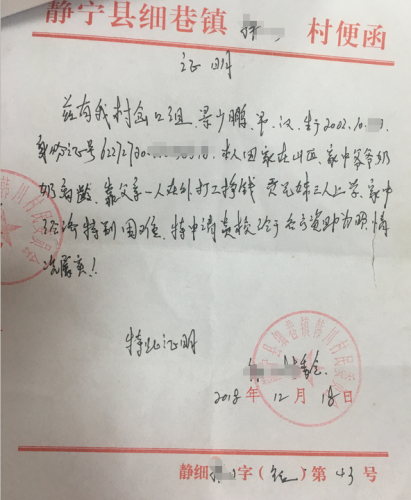 静宁县细巷镇 村便函
证明
兹有我村 口组，梁少鹏，男，汉，生于2002.10.
身份证号622727 本人因家在山区，家中爷爷奶
奶高龄，靠父亲一人在外打工挣钱 供兄妹三人上学，家中
经济特别困难，特申请贵校给予各方资助为盼，情
况属实！
特此证明
2018年12月18日
静宁县细巷镇 川村民委员会
静细 字( )第43号